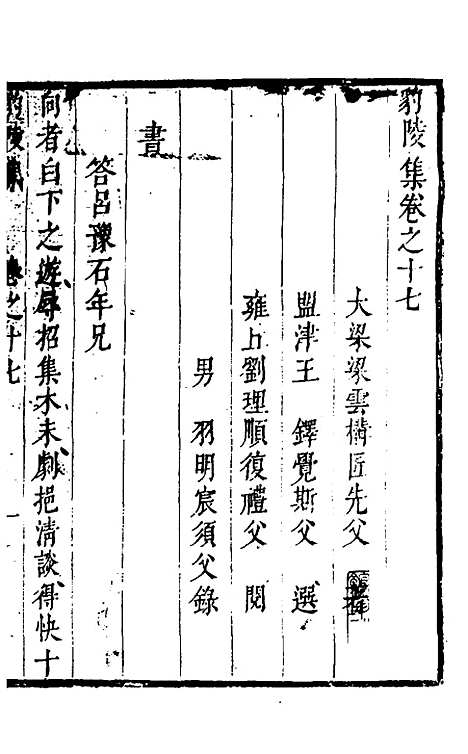 豹陵集卷之十七
大梁梁雲構匠先父 著
盟津王 鐸覺斯父 選
雍丘劉理順復禮父 閱
男 羽明宸須父錄
書
答呂豫石年兄
向者白下之遊辱招集水末劇挹清談得快十
豹陵集 卷之十七 一